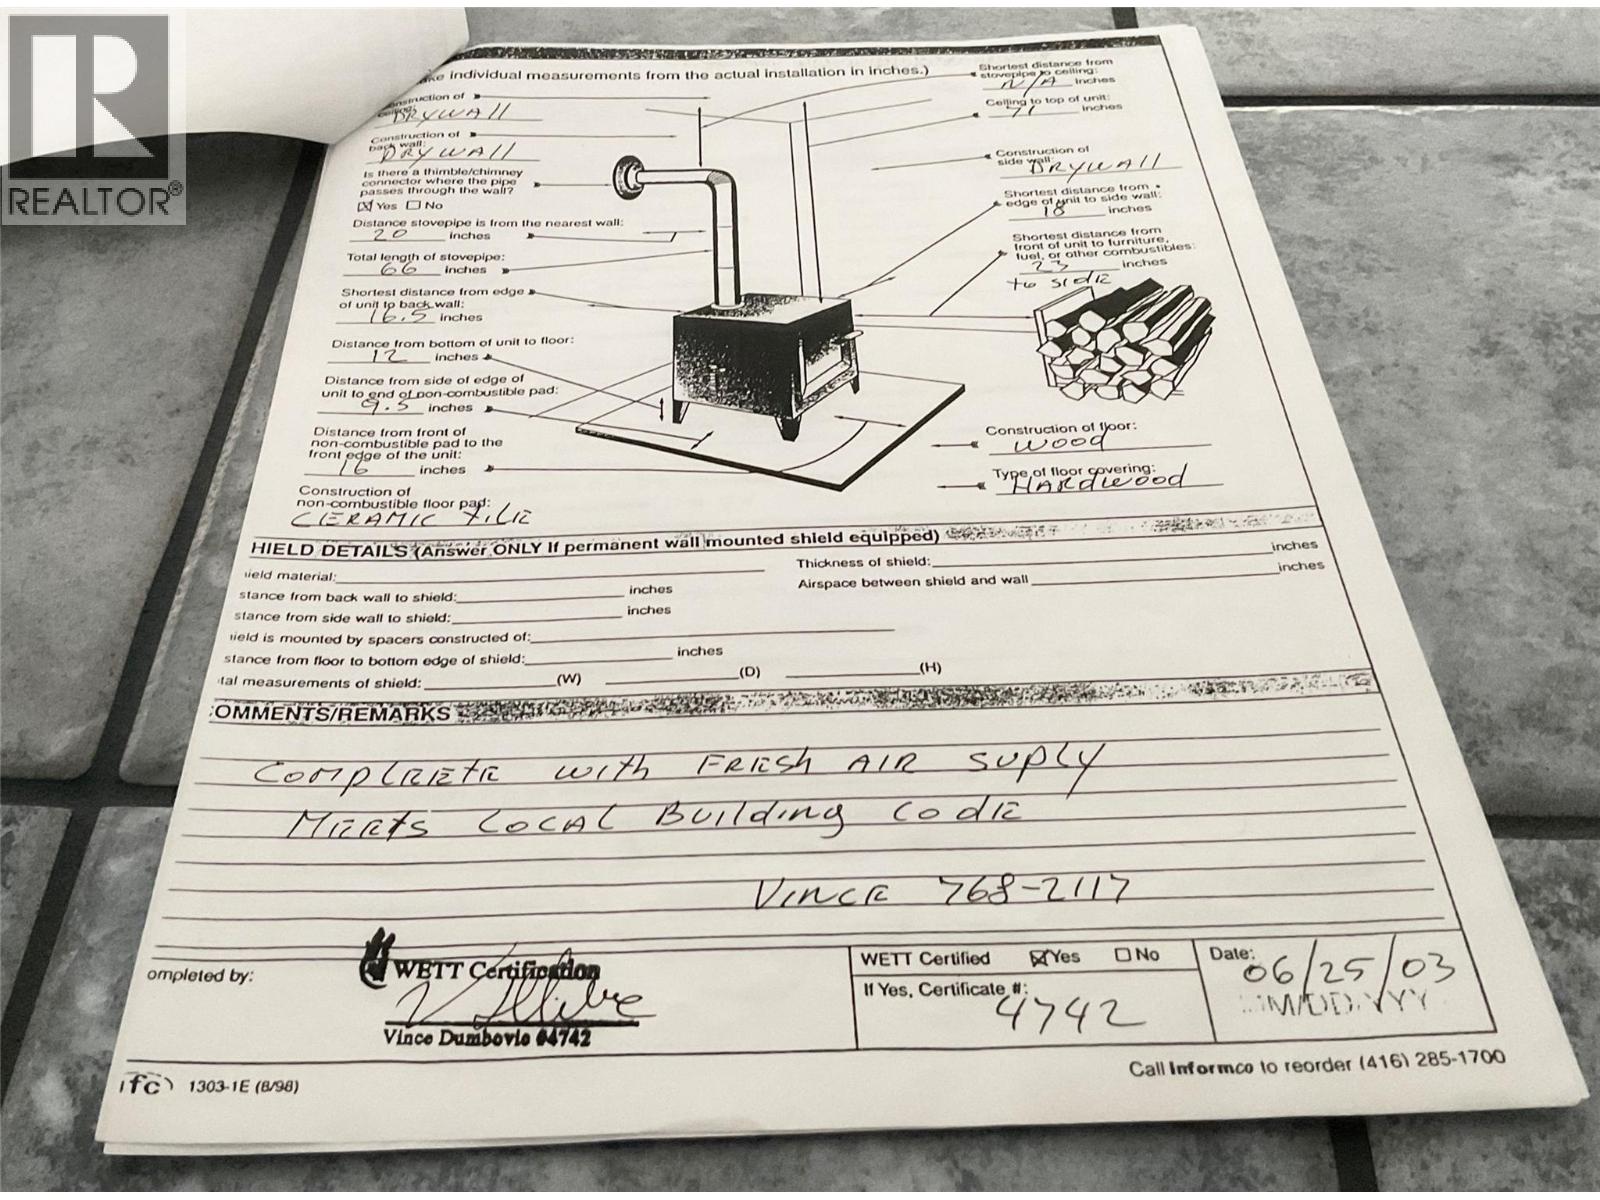 REALTOR®
ke individual measurements from the actual installation in inches.)
Construction of
ceiling:
DRYWALL
Construction of
back wall:
DRYWALL
Is there a thimble/chimney
connector where the pipe
passes through the wall?
☒ Yes ☐ No
Distance stovepipe is from the nearest wall:
20 inches
Total length of stovepipe:
66 inches
Shortest distance from edge
of unit to back wall:
16.5 inches
Distance from bottom of unit to floor:
12 inches
Distance from side of edge of
unit to end of non-combustible pad:
9.5 inches
Distance from front of
non-combustible pad to the
front edge of the unit:
16 inches
Construction of
non-combustible floor pad:
CERAMIC TILE
Shortest distance from
stovepipe to ceiling:
N/A inches
Ceiling to top of unit:
71 inches
Construction of
side wall:
DRYWALL
Shortest distance from
edge of unit to side wall:
18 inches
Shortest distance from
front of unit to furniture,
fuel, or other combustibles:
23 inches
to SIDE
Construction of floor:
WOOD
Type of floor covering:
HARDWOOD
HIELD DETAILS (Answer ONLY If permanent wall mounted shield equipped)
ield material:
Thickness of shield: inches
stance from back wall to shield: inches
Airspace between shield and wall inches
stance from side wall to shield: inches
ield is mounted by spacers constructed of:
stance from floor to bottom edge of shield: inches
tal measurements of shield: (W) (D) (H)
OMMENTS/REMARKS
COMPLEETE with FRESH AIR SUPLY
MEETS LOCAL Building CODE
VINCE 768-2117
ompleted by:
WETT Certification
Vince Dumbovic #4742
WETT Certified ☒ Yes ☐ No
If Yes, Certificate #:
4742
Date:
06/25/03
MM/DD/YYY
ifc 1303-1E (8/98)
Call Informco to reorder (416) 285-1700